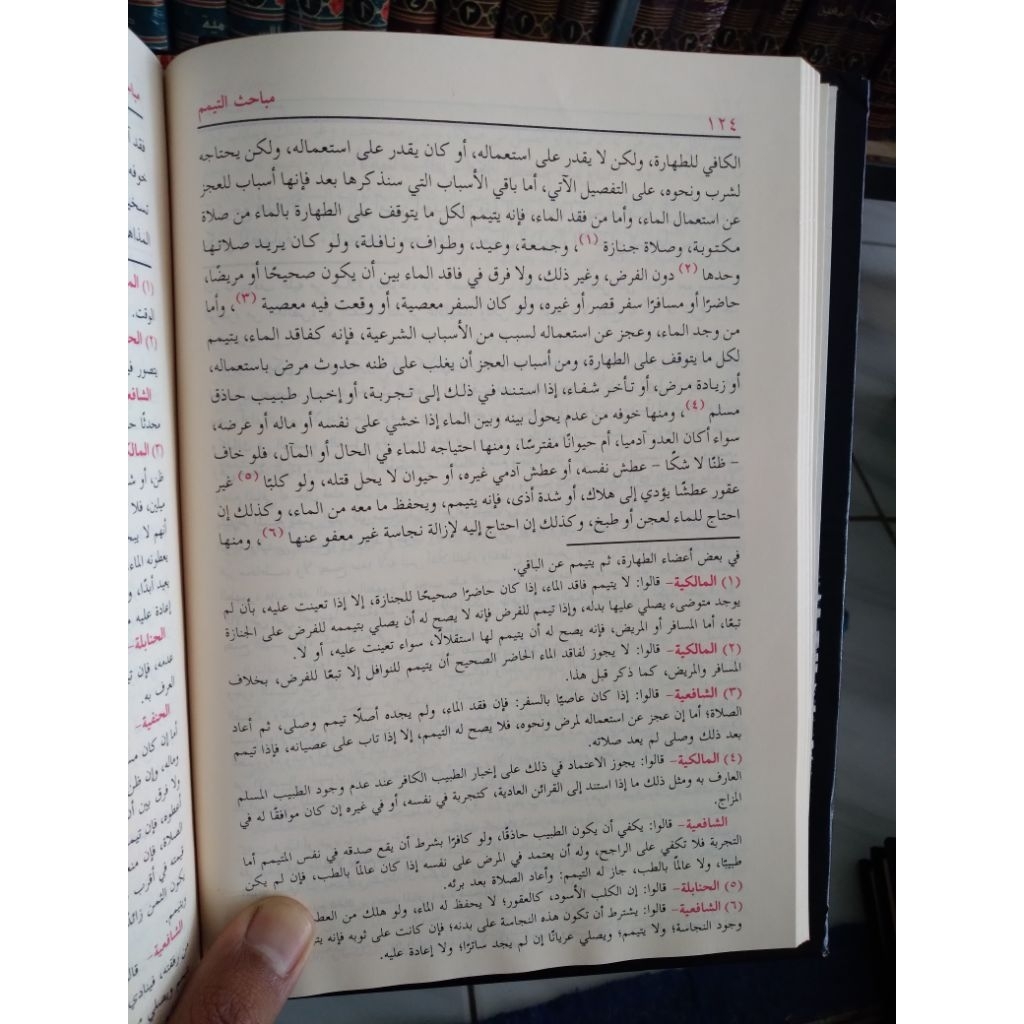 مباحث التيمم
١٢٤
الكافي للطهارة، ولكن لا يقدر على استعماله، أو كان يقدر على استعماله، ولكن يحتاجه
لشرب ونحوه، على التفصيل الآتي، أما باقي الأسباب التي سنذكرها بعد فإنها أسباب للعجز
عن استعمال الماء، وأما من فقد الماء، فإنه يتيمم لكل ما يتوقف على الطهارة بالماء من صلاة
مكتوبة، وصلاة جنازة (١)، وجمعة، وعيد، وطواف، ونافلة، ولو كان يريد صلاتها
وحدها (٢) دون الفرض، وغير ذلك، ولا فرق في فاقد الماء بين أن يكون صحيحًا أو مريضًا،
حاضرًا أو مسافرًا سفر قصر أو غيره، ولو كان السفر معصية، أو وقعت فيه معصية (٣)، وأما
من وجد الماء، وعجز عن استعماله لسبب من الأسباب الشرعية، فإنه كفاقد الماء، يتيمم
لكل ما يتوقف على الطهارة، ومن أسباب العجز أن يغلب على ظنه حدوث مرض باستعماله،
أو زيادة مرض، أو تأخر شفاء، إذا استند في ذلك إلى تجربة، أو إخبار طبيب حاذق
مسلم (٤)، ومنها خوفه من عدم يحول بينه وبين الماء إذا خشي على نفسه أو ماله أو عرضه،
سواء أكان العدو آدميا، أم حيوانًا مفترسًا، ومنها احتياجه للماء في الحال أو المآل، فلو خاف
– ظنًا لا شكًا – عطش نفسه، أو عطش آدمي غيره، أو حيوان لا يحل قتله، ولو كلبًا (٥) غير
عقور عطشًا يؤدي إلى هلاك، أو شدة أذى، فإنه يتيمم، ويحفظ ما معه من الماء، وكذلك إن
احتاج للماء لعجن أو طبخ، وكذلك إن احتاج إليه لإزالة نجاسة غير معفو عنها (٦)، ومنها
في بعض أعضاء الطهارة، ثم يتيمم عن الباقي.
(١) المالكية– قالوا: لا يتيمم فاقد الماء، إذا كان حاضرًا صحيحًا للجنازة، إلا إذا تعينت عليه، بأن لم
يوجد متوضىء يصلي عليها بدله، وإذا تيمم للفرض فإنه لا يصح له أن يصلي بتيممه للفرض على الجنازة
تبعًا، أما المسافر أو المريض، فإنه يصح له أن يتيمم لها استقلالًا، سواء تعينت عليه، أو لا.
(٢) المالكية– قالوا: لا يجوز لفاقد الماء الحاضر الصحيح أن يتيمم للنوافل إلا تبعًا للفرض، بخلاف
المسافر والمريض، كما ذكر قبل هذا.
(٣) الشافعية– قالوا: إذا كان عاصيًا بالسفر: فإن فقد الماء، ولم يجده أصلًا تيمم وصلى، ثم أعاد
الصلاة؛ أما إن عجز عن استعماله لمرض ونحوه، فلا يصح له التيمم، إلا إذا تاب على عصيانه، فإذا تيمم
بعد ذلك وصلى لم يعد صلاته.
(٤) المالكية– قالوا: يجوز الاعتماد في ذلك على إخبار الطبيب الكافر عند عدم وجود الطبيب المسلم
العارف به ومثل ذلك ما إذا استند إلى القرائن العادية، كتجربة في نفسه، أو في غيره إن كان موافقًا له في
المزاج.
الشافعية– قالوا: يكفي أن يكون الطبيب حاذقًا، ولو كافرًا بشرط أن يقع صدقه في نفس المتيمم أما
التجربة فلا تكفي على الراجح، وله أن يعتمد في المرض على نفسه إذا كان عالمًا بالطب، فإن لم يكن
طبيبًا، ولا عالمًا بالطب، جاز له التيمم: وأعاد الصلاة بعد برئه.
(٥) الحنابلة– قالوا: إن الكلب الأسود، كالعقور؛ لا يحفظ له الماء، ولو هلك من
(٦) الشافعية– قالوا: يشترط أن تكون هذه النجاسة على بدنه؛ فإن كانت على ثوبه فإنه
وجود النجاسة؛ ولا يتيمم؛ ويصلي عريانًا إن لم يجد ساترًا؛ ولا إعادة عليه.